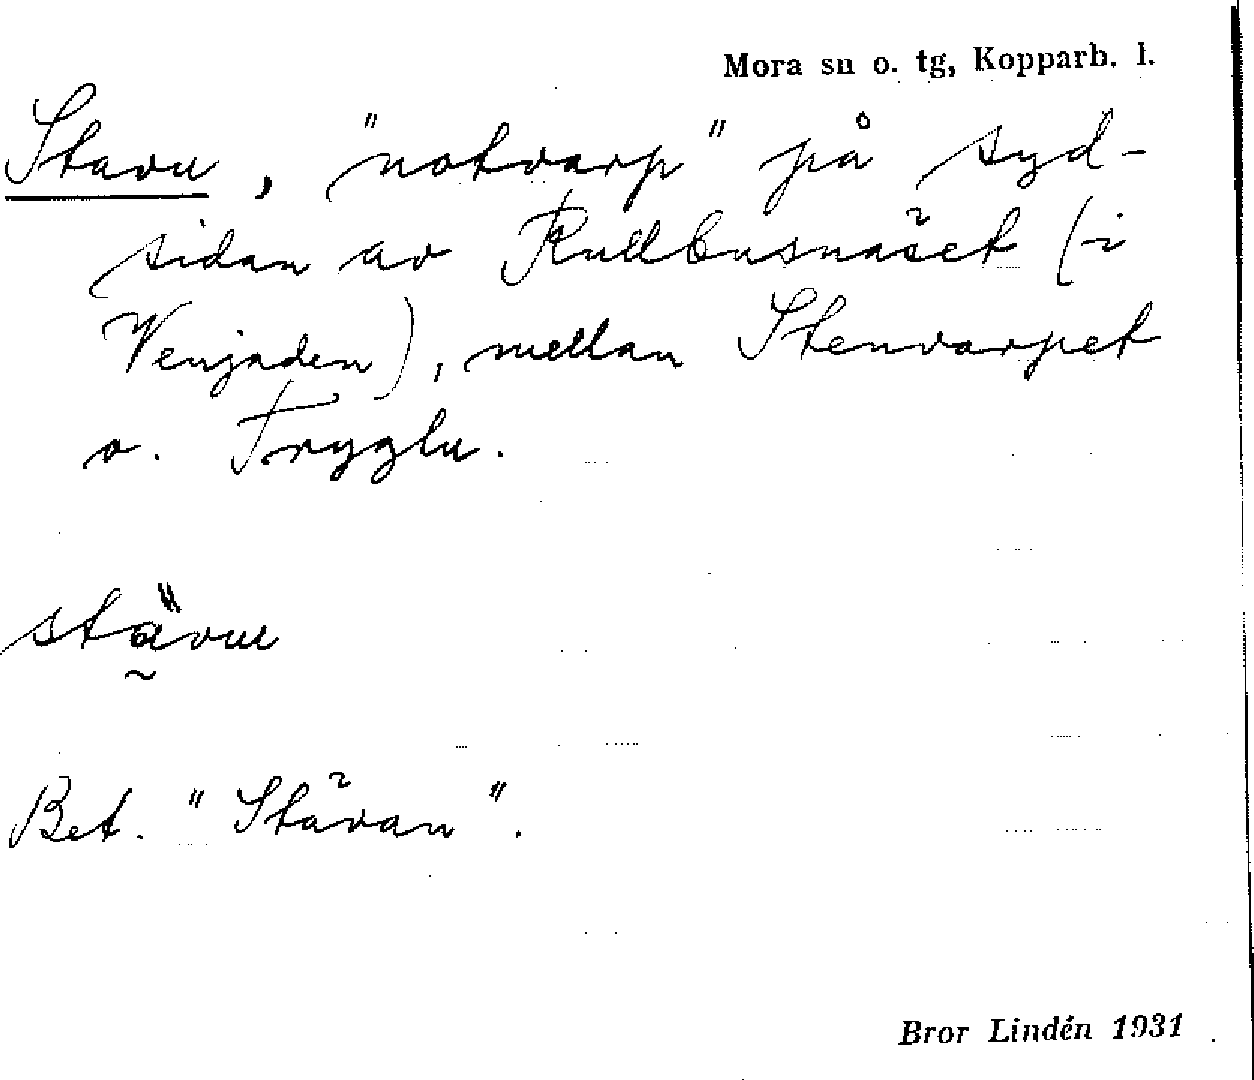 Mora sn o. tg, Kopparb. l.
Stavu, "notvarp" på syd-
sidan av Kullbusnäset (i
Venjaden), mellan Stenvarpet
o. Tryglu.
stävu
Bet. "Stävan".
Bror Lindén 1931